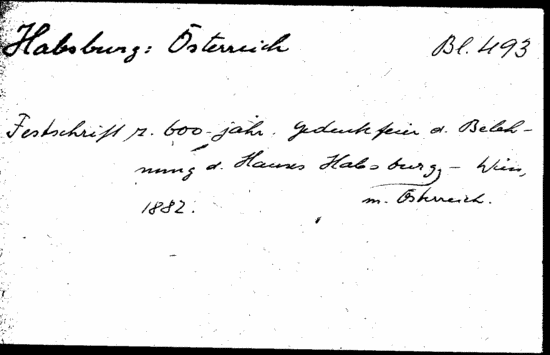 Habsburg: Österreich Bl. 493
Festschrift z. 600-jähr. Gedenkfeier d. Beleh-
nung d. Hauses Habsburg - Wien,
m. Österreich.
1882.